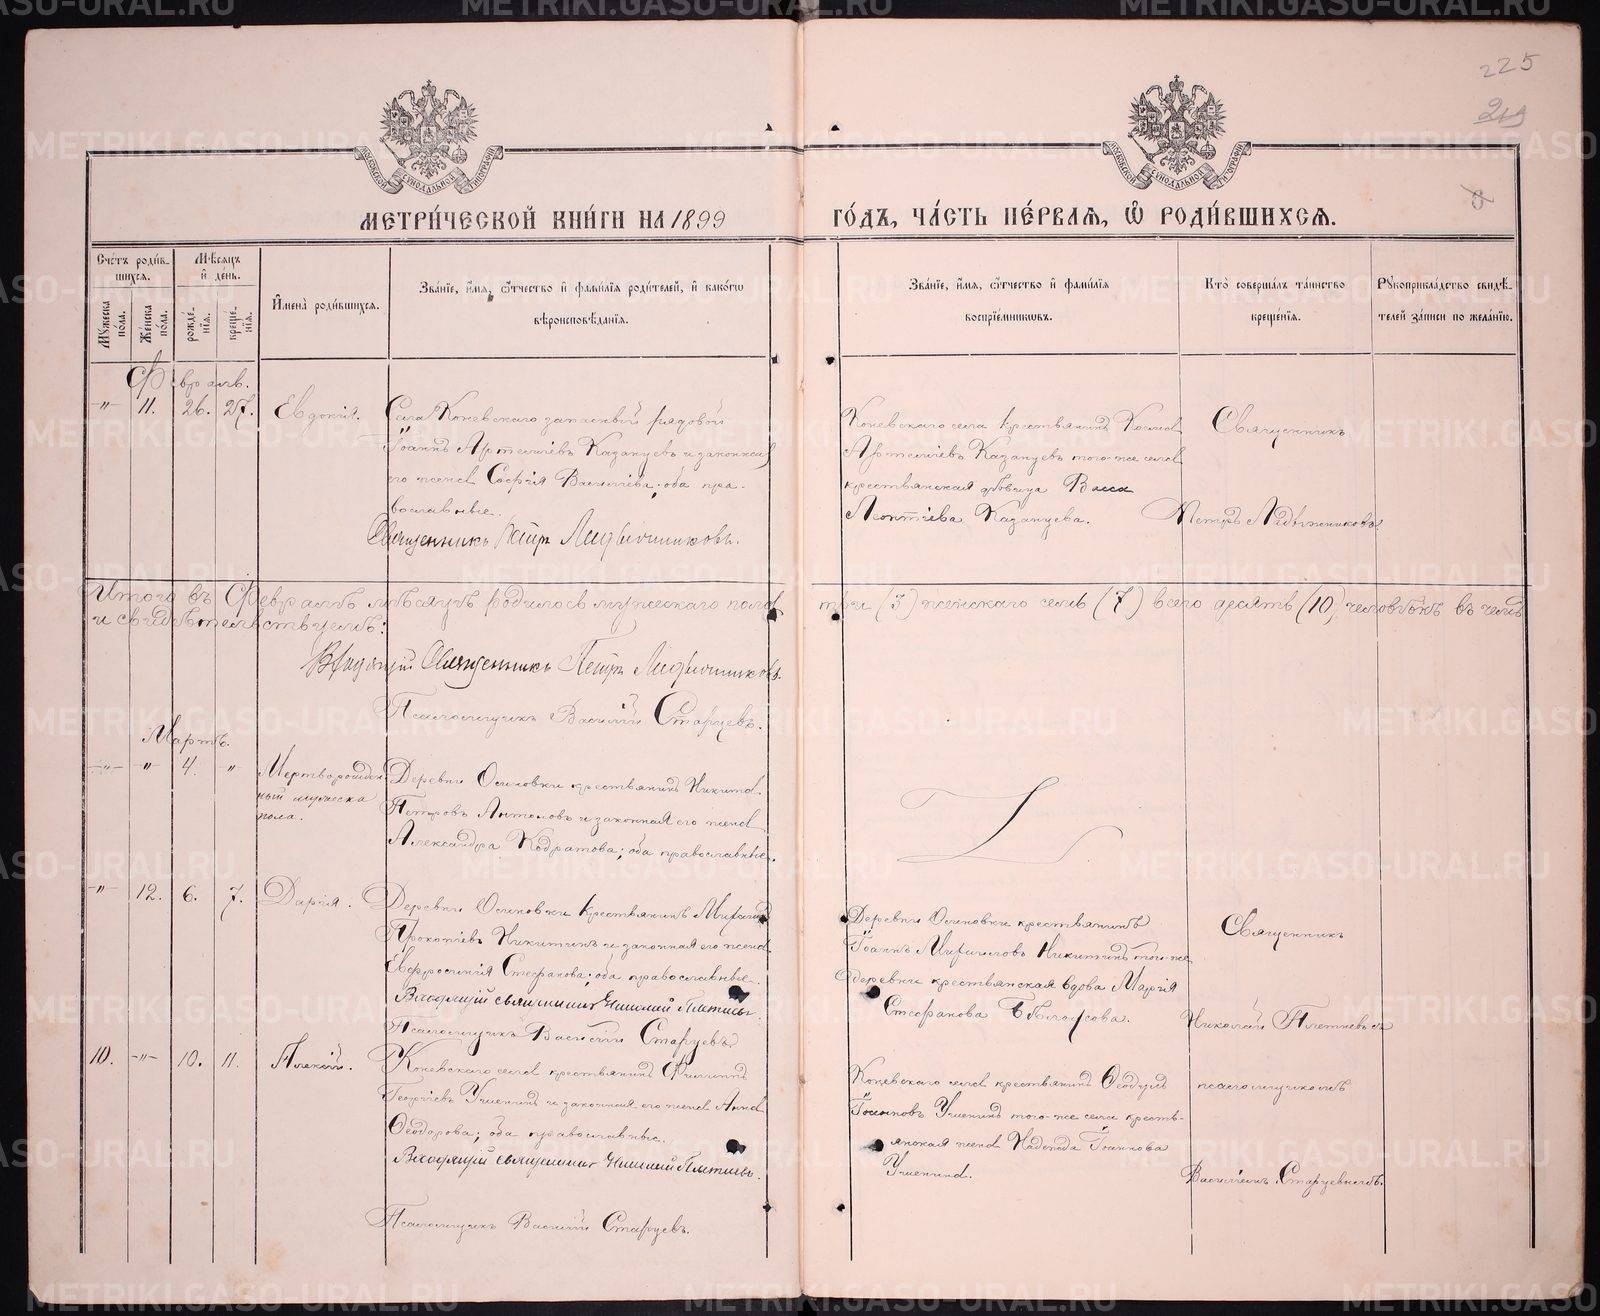 225
219
МОСКОВСКОЙ СѴНОДАЛЬНОЙ ТИПОГРАФІИ
МОСКОВСКОЙ СѴНОДАЛЬНОЙ ТИПОГРАФІИ
МЕТРИ́ЧЕСКОЙ КНИ́ГИ НА 1899 ГО́ДЪ, ЧА́СТЬ ПЕ́РВАѦ, Ѡ҆ РОДИ́ВШИХСѦ.
Сче́тъ роди́в-
шихсѧ.
Мѣ́сѧцъ
и҆ де́нь.
Мꙋ́жеска
по́ла.
Же́нска
по́ла.
рожде́-
нїѧ.
креще́-
нїѧ.
И҆мена̀ роди́вшихсѧ.
Зва́нїе, и҆́мѧ, ѻ҆́тчество и҆ фамѝлїѧ роди́телей, и҆ како́гѡ
вѣроисповѣ́данїѧ.
Зва́нїе, и҆́мѧ, ѻ҆́тчество и҆ фамѝлїѧ
воспрїе́мникѡвъ.
Кто̀ соверша́лъ та́инство
креще́нїѧ.
Рꙋкоприкла́дство свидѣ́-
телей за́писи по жела́нїю.
Февраль.
-"- 11. 26. 27. Евдокія.
Села Коневскаго запасный рядовой
Іоаннъ Артеміевъ Казанцевъ и законная
его жена Софія Васильева; оба пра-
вославные.
Священникъ Петръ Лидвочниковъ.
Коневскаго села крестьянинъ
Артеміевъ Казанцевъ того-же села
крестьянская дѣвица Васса
Леонтіева Казанцева.
Священникъ
Петръ
Итого въ Февралѣ мѣсяцѣ родилось мужескаго пола три (3) женскаго семь (7) всего десять (10) человѣкъ въ чемъ
и свидѣтельствуемъ:
Священникъ Петръ
Псаломщикъ Василій Старцевъ.
Мартъ.
-"- " 4. " Мертворожден-
ный мужеска
пола.
Деревни Осиновки крестьянинъ Никита
Петровъ Антоновъ и законная его жена
Александра Кодратова; оба православные.
-"- 12. 6. 7. Дарія.
Деревни Осиновки крестьянинъ
Прокопіевъ Никитинъ и законная его жена
Евфросинія Стефанова; оба православные.
Входящій священникъ Николай
Псаломщикъ Василій Старцевъ
Деревни Осиновки крестьянинъ
Іоаннъ Никитинъ той-же
деревни крестьянская вдова Марія
Стефанова Бѣлоусова.
Священникъ
Николай
10. -"- 10. 11. Алексій.
Коневскаго села крестьянинъ Филиппъ
Георгіевъ Ушенинъ и законная его жена Анна
Ѳеодорова; оба православные.
Входящій священникъ Николай
Псаломщикъ Василій Старцевъ.
Коневскаго села крестьянинъ Ѳеодулъ
Ушенинъ того-же села кресть-
янская жена Надежда Іоаннова
Ушенина.
псаломщикомъ
Василіемъ Старцевымъ.
METRIKI.GASO-URAL.RU